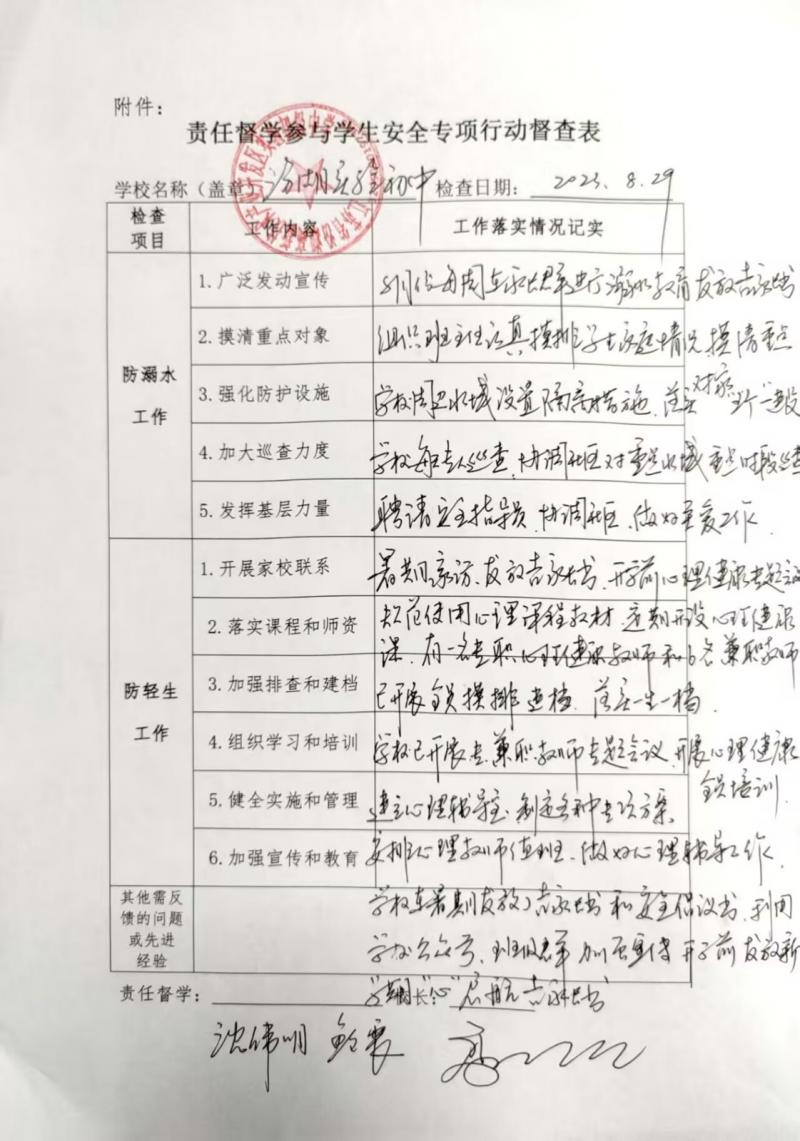 附件：
责任督学参与学生安全专项行动督查表
学校名称（盖章） 汾湖实验初中 检查日期： 2023.8.29
检查项目 工作内容 工作落实情况记实
防溺水工作
1.广泛发动宣传 利用每周在家长群进行溺水教育 发放告家长书
2.摸清重点对象 组织班主任认真摸排学生家庭情况 摸清重点
3.强化防护设施 学校周边水域设置隔离措施、落实
4.加大巡查力度 学校每日专人巡查、协调社区对重点水域重点时段巡查
5.发挥基层力量 聘请 指导员、协调社区、做好 工作.
防轻生工作
1.开展家校联系 暑期家访、发放告家长书、开学前心理健康专题会议
2.落实课程和师资 规范使用心理课程教材 定期开设心理健康
课、有一名专职心理健康教师和6名兼职教师
3.加强排查和建档 已开展全员摸排建档、落实一生一档
4.组织学习和培训 学校已开展专、兼职教师专题会议、开展心理健康
全员培训.
5.健全实施和管理 建立心理辅导室、制定各种专项方案
6.加强宣传和教育 安排心理教师值班、做好心理辅导工作.
其他需反馈的问题或先进经验
学校在暑期发放了告家长书和安全倡议书、利用
学校公众号、班级群 加强宣传 开学前发放新
学期 “心”启航告家长书
责任督学：
沈伟明